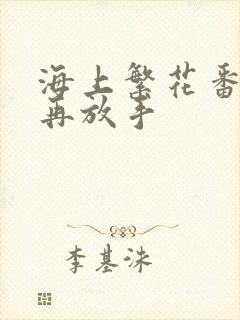 海上繁花番
再放手
李基洙